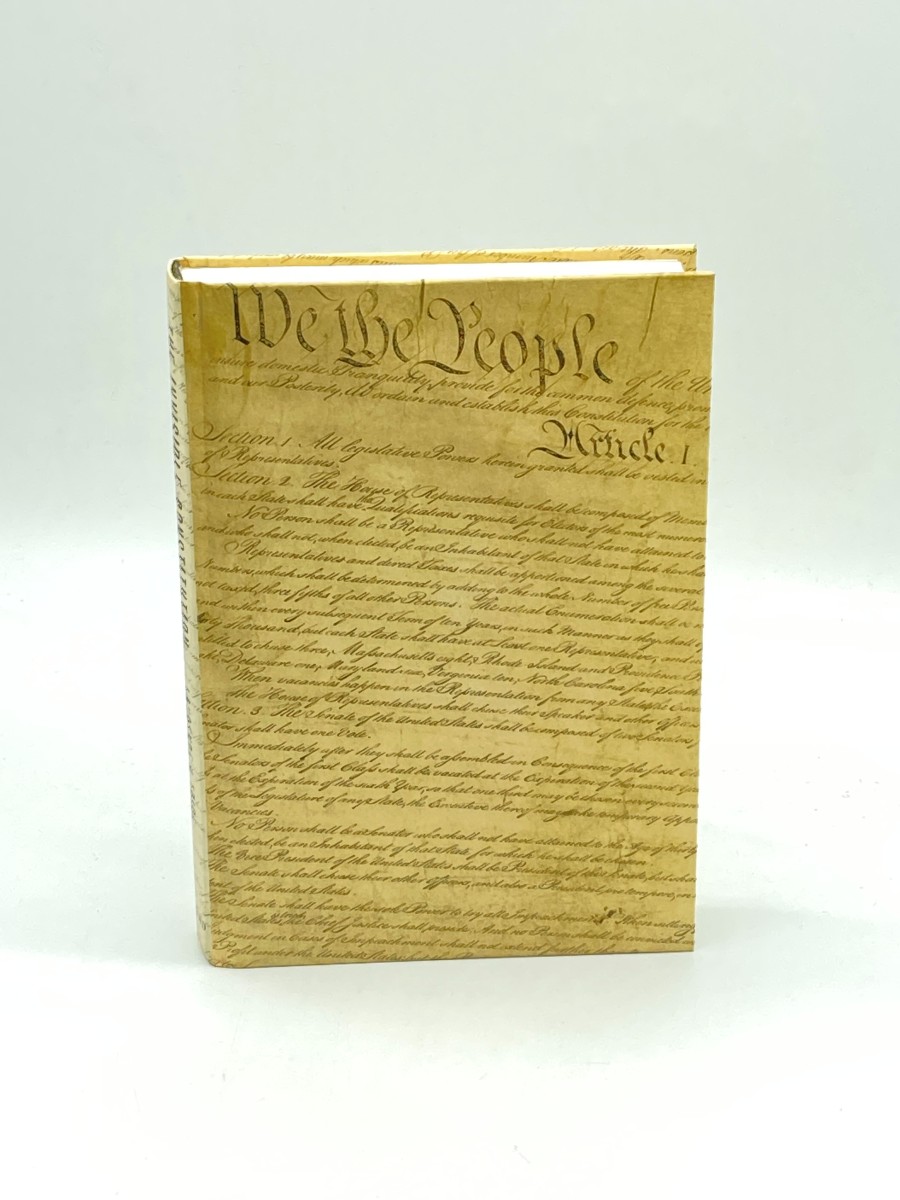 THE INVISIBLE CONSTITUTION
We the People of the Un
insure domestic Tranquility, provide for the common defence, prom
and our Posterity, do ordain and establish this Constitution for the
Article. I.
Section. 1. All legislative Powers herein granted shall be vested in
of Representatives.
Section. 2. The House of Representatives shall be composed of Mem
in each State shall have the Qualifications requisite for Electors of the most numerou
No Person shall be a Representative who shall not have attained to
and who shall not, when elected, be an Inhabitant of that State in which he shall
Representatives and direct Taxes shall be apportioned among the several
Numbers, which shall be determined by adding to the whole Number of free Per
not taxed, three fifths of all other Persons. The actual Enumeration shall be m
and within every subsequent Term of ten Years, in such Manner as they shall
Thousand, but each State shall have at Least one Representative; and
entitled to chuse three, Massachusetts eight, Rhode Island and Providence
Delaware one, Maryland six, Virginia ten, North Carolina five, South
When vacancies happen in the Representation from any State, the Execu
The House of Representatives shall chuse their Speaker and other Officers
ction. 3. The Senate of the United States shall be composed of two Senators
nator shall have one Vote.
Immediately after they shall be assembled in Consequence of the first Ele
Senators of the first Class shall be vacated at the Expiration of the second Year
at the Expiration of the sixth Year, so that one third may be chosen every second
of the Legislature of any State, the Executive thereof may make temporary Appo
Vacancies.
No Person shall be a Senator who shall not have attained to the Age of thirty
hen elected, be an Inhabitant of that State for which he shall be chosen.
The Vice President of the United States shall be President of the Senate, but shall
The Senate shall chuse their other Officers, and also a President pro tempore, in
ent of the United States.
The Senate shall have the sole Power to try all Impeachments. When sitting
United States is tried, the Chief Justice shall preside: And no Person shall be convicted
Judgment in Cases of Impeachment shall not extend further than
Profit under the United States